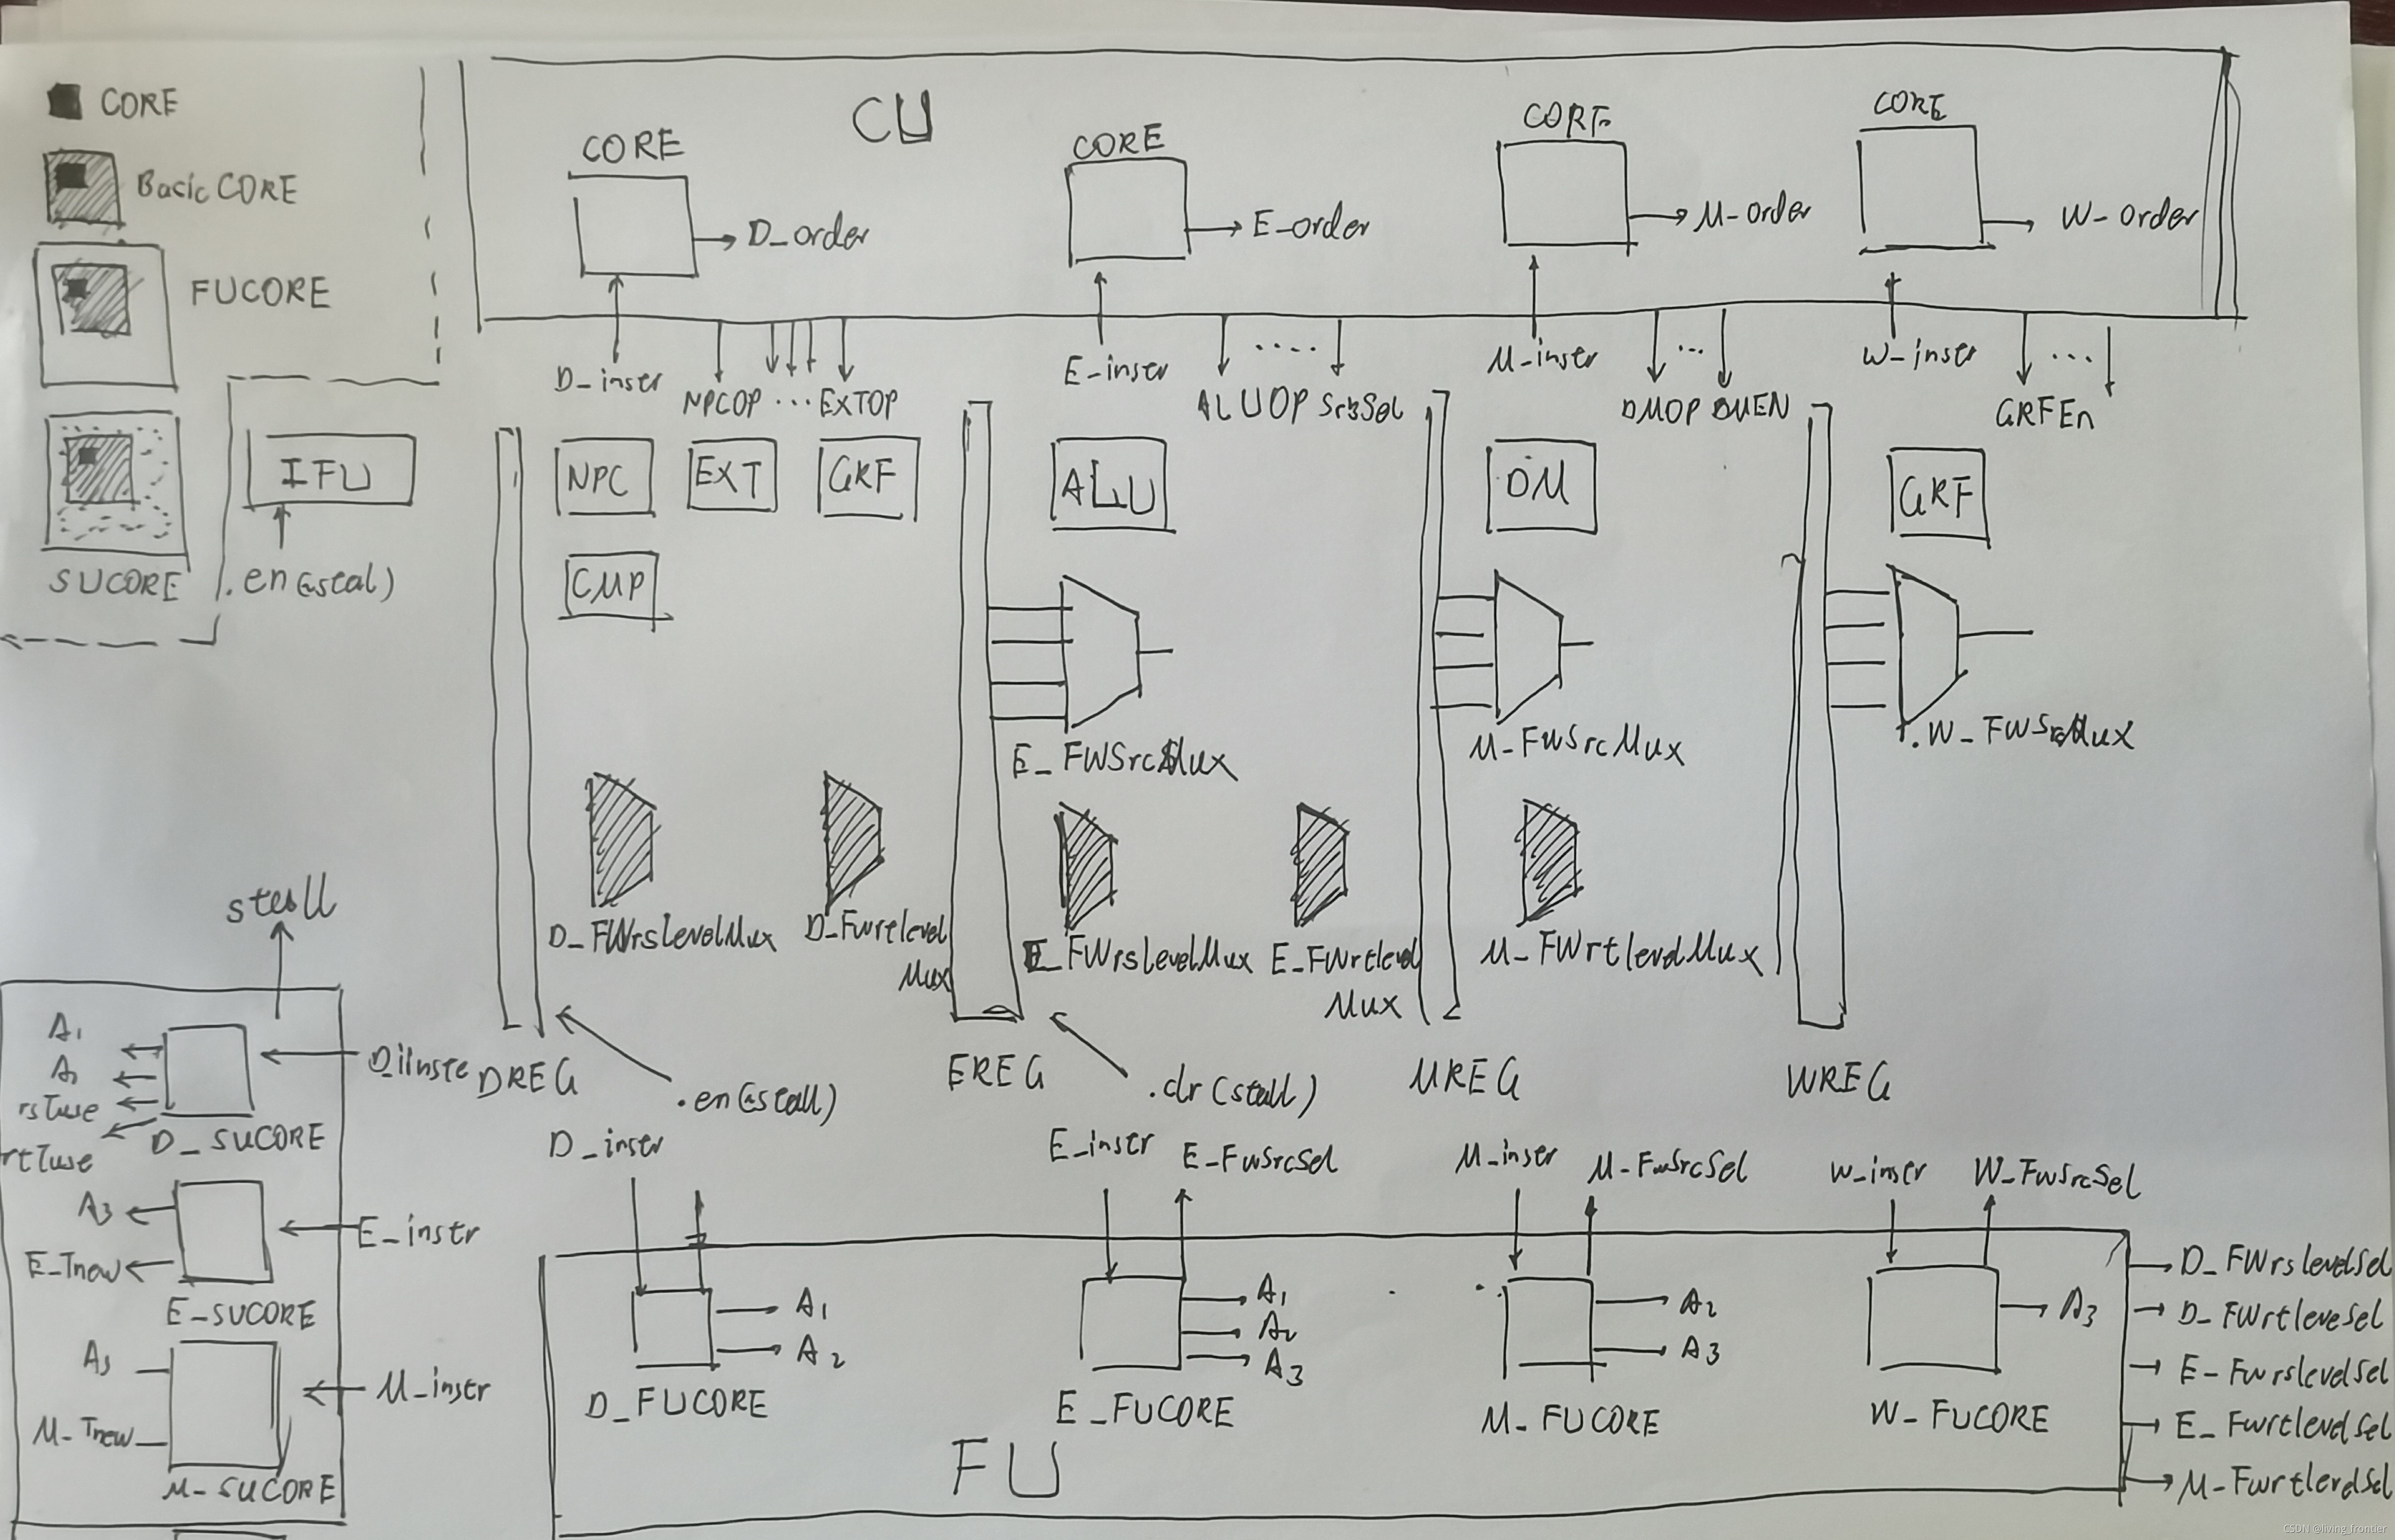 CORE
Basic CORE
FUCORE
SUCORE
IFU
CU
CORE
D_order
CORE
E_order
CORE
M-order
CORE
W-order
D_instr
NPCOP ... EXTOP
E_instr
ALUOP
....
M_instr
...
DMOP DMEN
W_instr
...
GRFEn
NPC
EXT
GRF
CMP
ALU
DM
GRF
E_FWSrcMux
M-FWSrcMux
W_FWSrcMux
D_FWrslevelMux
D_FWrtlevel
Mux
E_FWrslevelMux
E_FWrtlevel
Mux
M_FWrtlevelMux
DREG
EREG
.clr(stall)
MREG
WREG
stall
A1
rsTuse
rtTuse
D_SUCORE
A3
E_Tnew
E_instr
E_SUCORE
M_Tnew
M_instr
M_SUCORE
D_instr
E_instr
E_FWSrcSel
M_instr
M-FWSrcSel
W_instr
W_FWSrcSel
A1
A2
D_FUCORE
A1
A2
A3
E_FUCORE
A2
A3
M_FUCORE
A3
W_FUCORE
FU
D_FWrslevelSel
D_FWrtleveSel
E-FWrslevelSel
E_FWrtlevelSel
M-FWrtlevelSel
CSDN @living_frontier